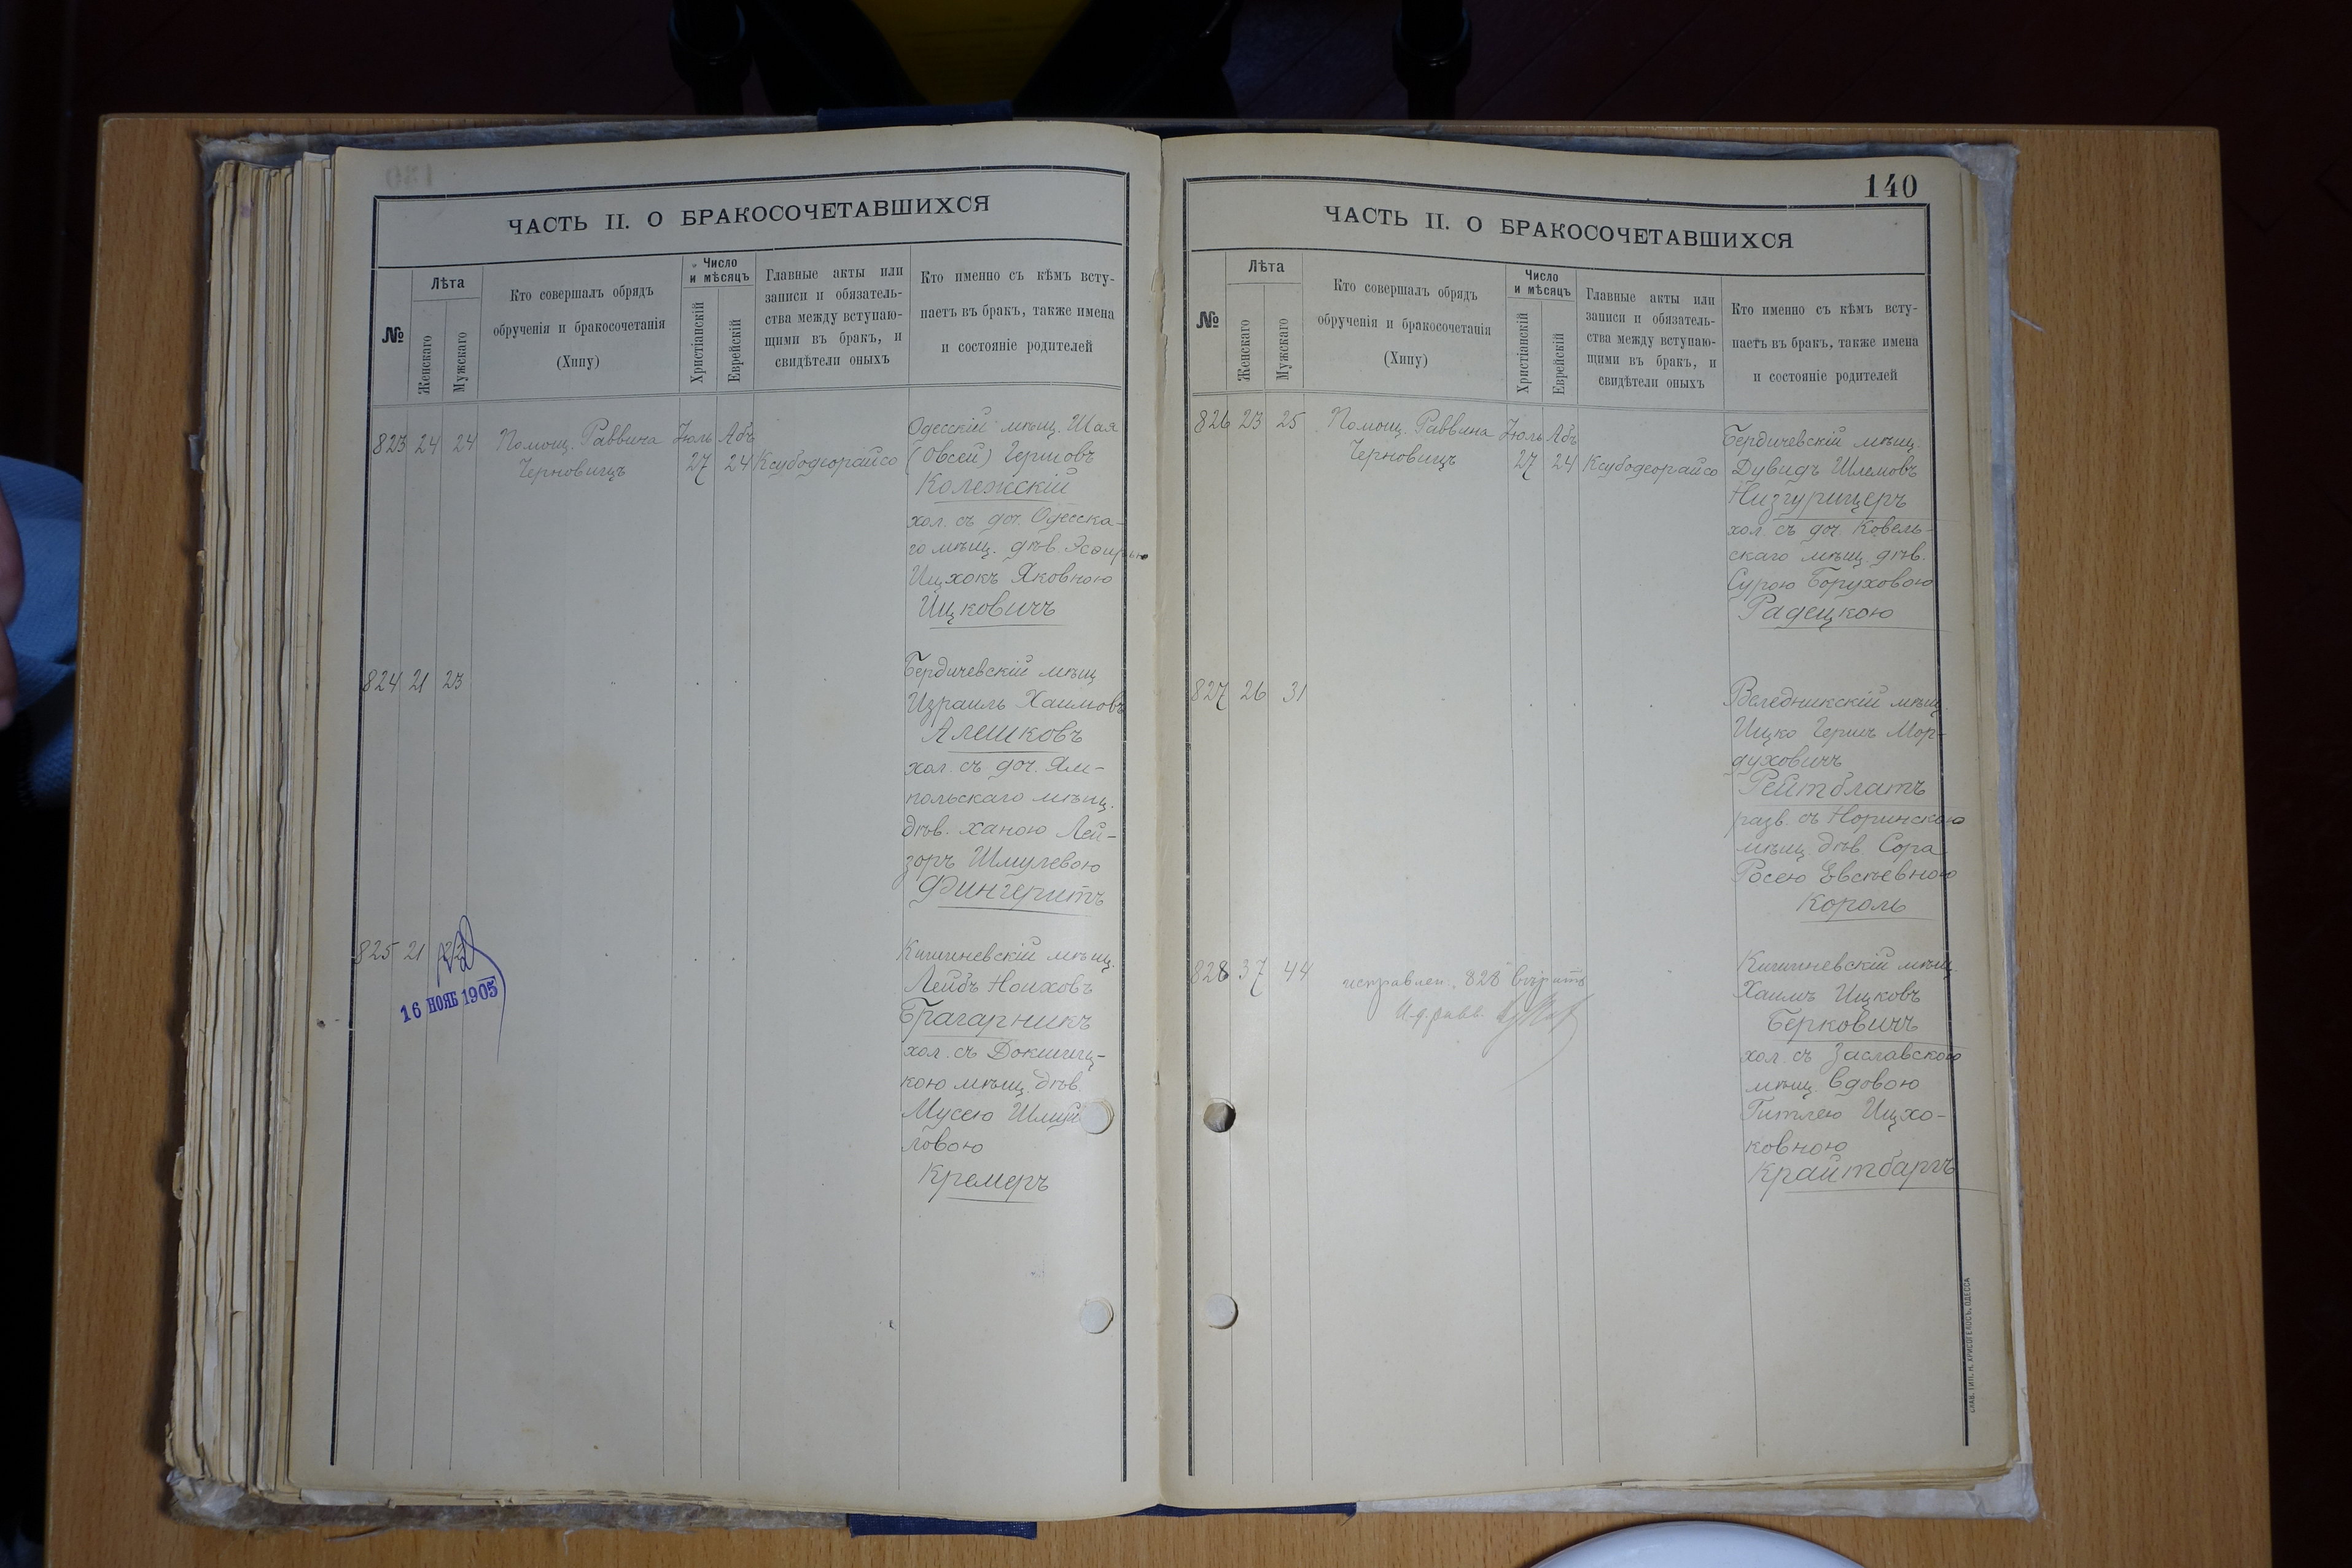 ЧАСТЬ II. О БРАКОСОЧЕТАВШИХСЯ
№
Лѣта
Женскаго
Мужскаго
Кто совершалъ обрядъ
обрученія и бракосочетанія
(Хипу)
Число
и мѣсяцъ
Христіанскій
Еврейскій
Главные акты или
записи и обязатель-
ства между вступаю-
щими въ бракъ, и
свидѣтели оныхъ
Кто именно съ кѣмъ всту-
паетъ въ бракъ, также имена
и состояніе родителей
823 24 24 Помощ. Раввина Іюль Абъ
Черновицъ 27 24 Ксубодеорайсо
Одесскій мѣщ. Шая
(Овсей) Гершовъ
Колежскій
хол. съ доч. Одесска-
го мѣщ. дѣв. Эсѳирью
Ицхокъ Яковною
Ицковичъ
824 21 23
Бердичевскій мѣщ
Израиль Хаимовъ
Алешковъ
хол. съ доч. Ям-
польскаго мѣщ.
дѣв. Ханою Лей-
зоръ Шмулевою
Фингеритъ
825 21
16 НОЯБ 1905
Кишиневскій мѣщ.
Лейбъ Ноиховъ
Брагарникъ
хол. съ Докшиц-
кою мѣщ. дѣв.
Мусею
ловою
Кремеръ
140
ЧАСТЬ II. О БРАКОСОЧЕТАВШИХСЯ
№
Лѣта
Женскаго
Мужскаго
Кто совершалъ обрядъ
обрученія и бракосочетанія
(Хипу)
Число
и мѣсяцъ
Христіанскій
Еврейскій
Главные акты или
записи и обязатель-
ства между вступаю-
щими въ бракъ, и
свидѣтели оныхъ
Кто именно съ кѣмъ всту-
паетъ въ бракъ, также имена
и состояніе родителей
826 23 25 Помощ. Раввина Іюль Абъ
Черновицъ 27 24 Ксубодеорайсо
Бердичевскій мѣщ.
Дувидъ Шлемовъ
Низгурицеръ
хол. съ доч. Ковель-
скаго мѣщ. дѣв.
Сурою Боруховою
Радецкою
827 26 31
Веледникскій мѣщ.
Ицко Гершъ Мор-
духовичъ
Рейтблатъ
разв. съ Норинскою
мѣщ. дѣв. Сора
Росею Евсѣевною
Король
828 37 44
исправлен. 828 вѣрить
И. д. равв.
Кишиневскій мѣщ.
Хаимъ Ицковъ
Берковичъ
хол. съ Заславскою
мѣщ. вдовою
Гитлею Ицхо-
ковною
Крайтбаргъ
СЛАВ. ТИП. Н. ХРИСОГЕЛОСЪ, ОДЕССА